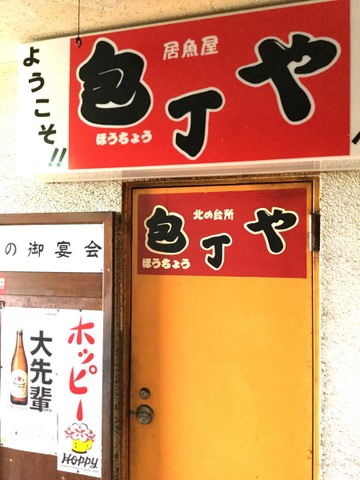 ようこそ!!
居魚屋
包丁や
ほうちょう
北の台所
包丁や
ほうちょう
の御宴会
大先輩
ホッピー
HOPPY